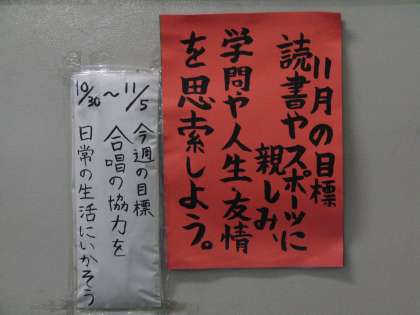 11月の目標
読書やスポーツに
親しみ、
学問や人生、友情
を思索しよう。
10/30 〜 11/5
今週の目標
合唱の協力を
日常の生活にいかそう